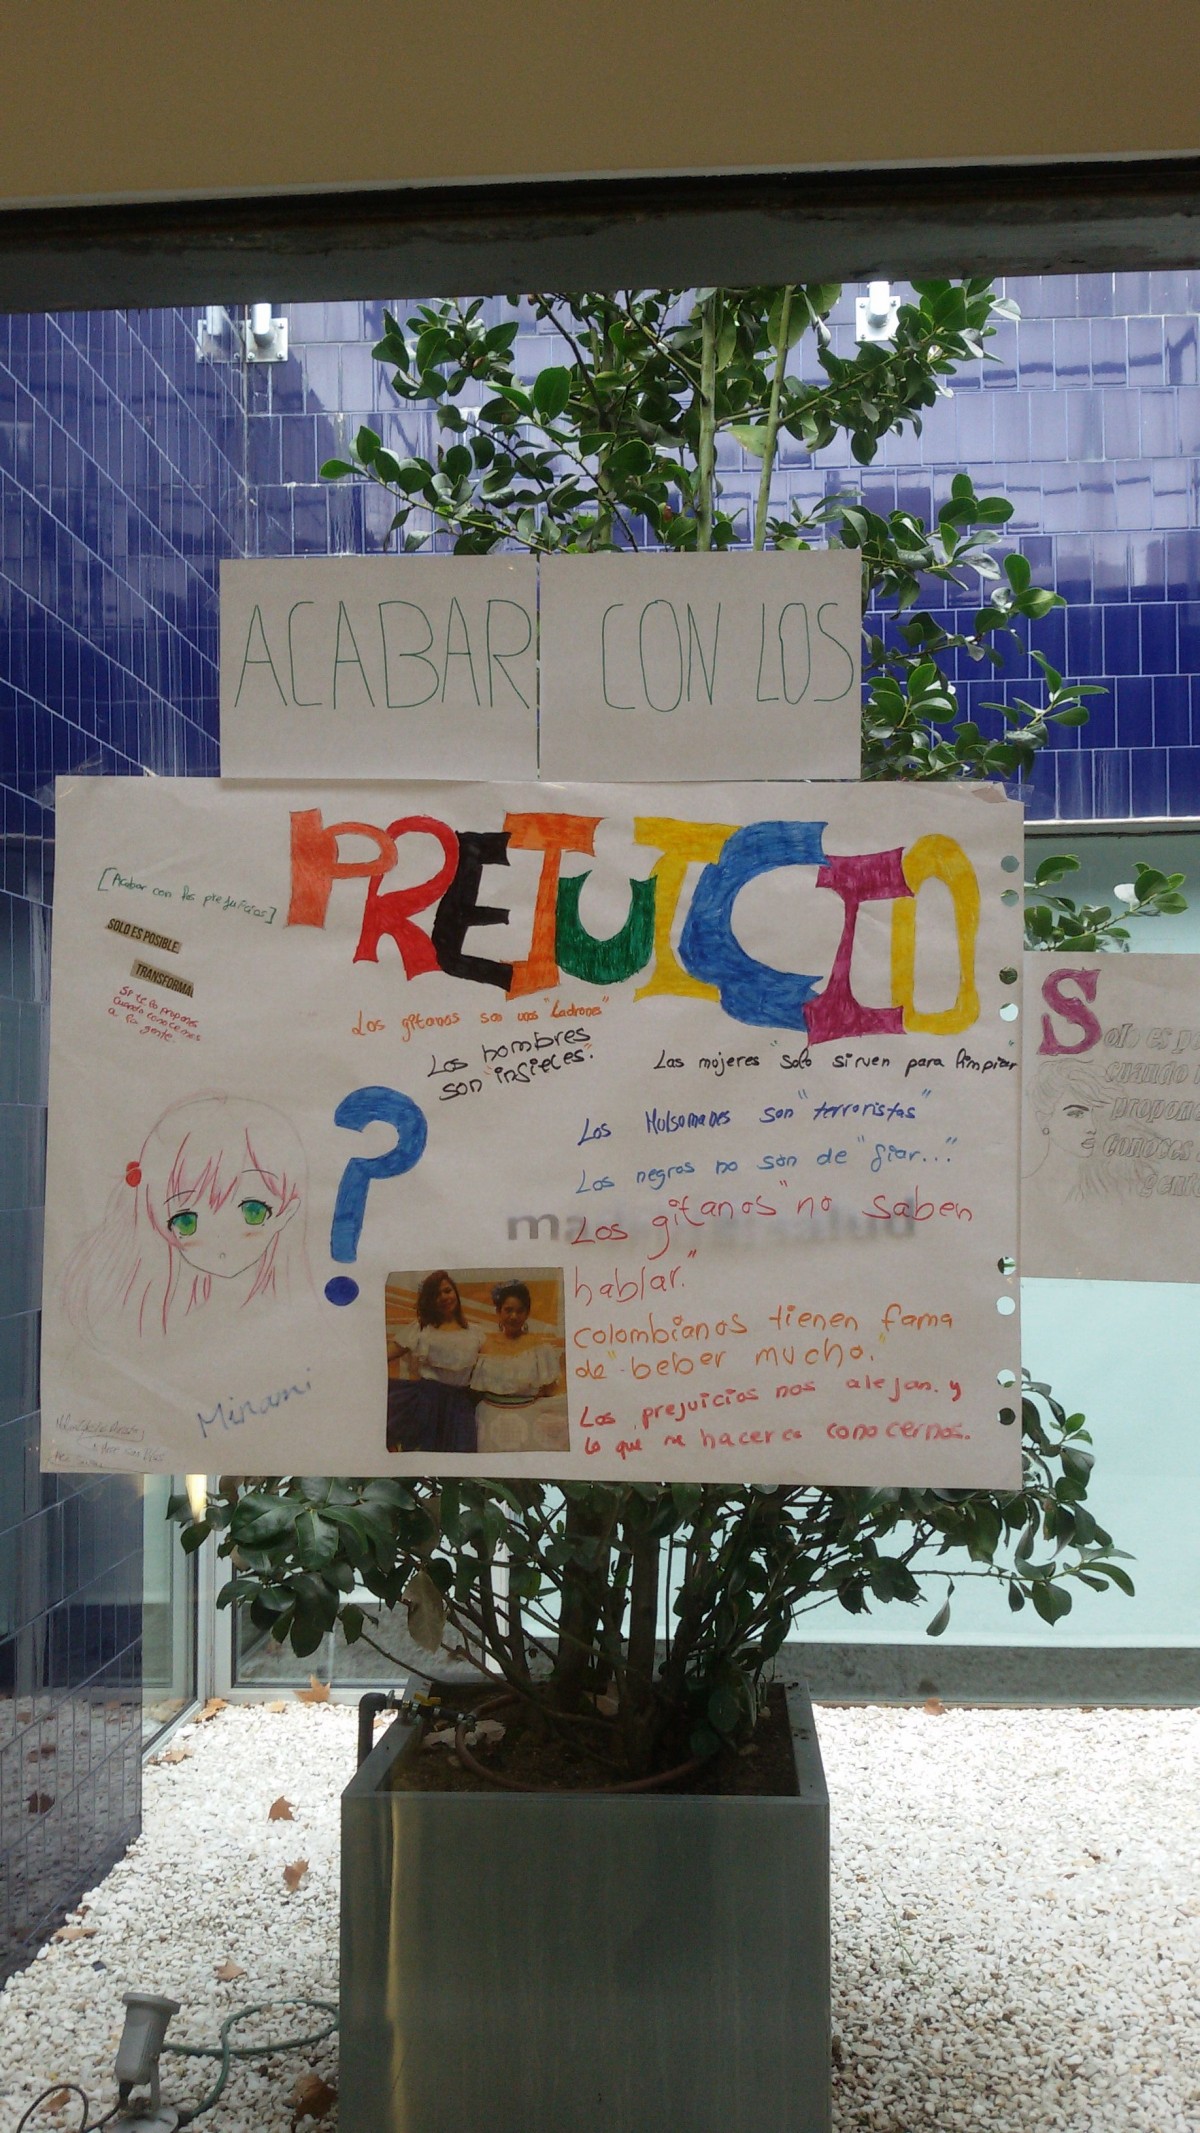 ACABAR CON LOS
PREJUICIO
[Acabar con los prejuicios]
SOLO ES POSIBLE
TRANSFORMA
si te lo propones
cuando conocemos
a la gente.
Los gitanos son unos "Ladrones"
Los hombres
son "infieles".
Las mojeres "solo sirven para limpiar
Los Mulsomanes son "terroristas"
Los negros no son de "fiar..."
Los gitanos "no saben
hablar."
Colombianos tienen fama
de "beber mucho."
Los prejuicios nos alejan. y
lo que me hacer es conocernos.
?
Minami
madrid salud
Solo es po
cuando
propon
conoces
gente